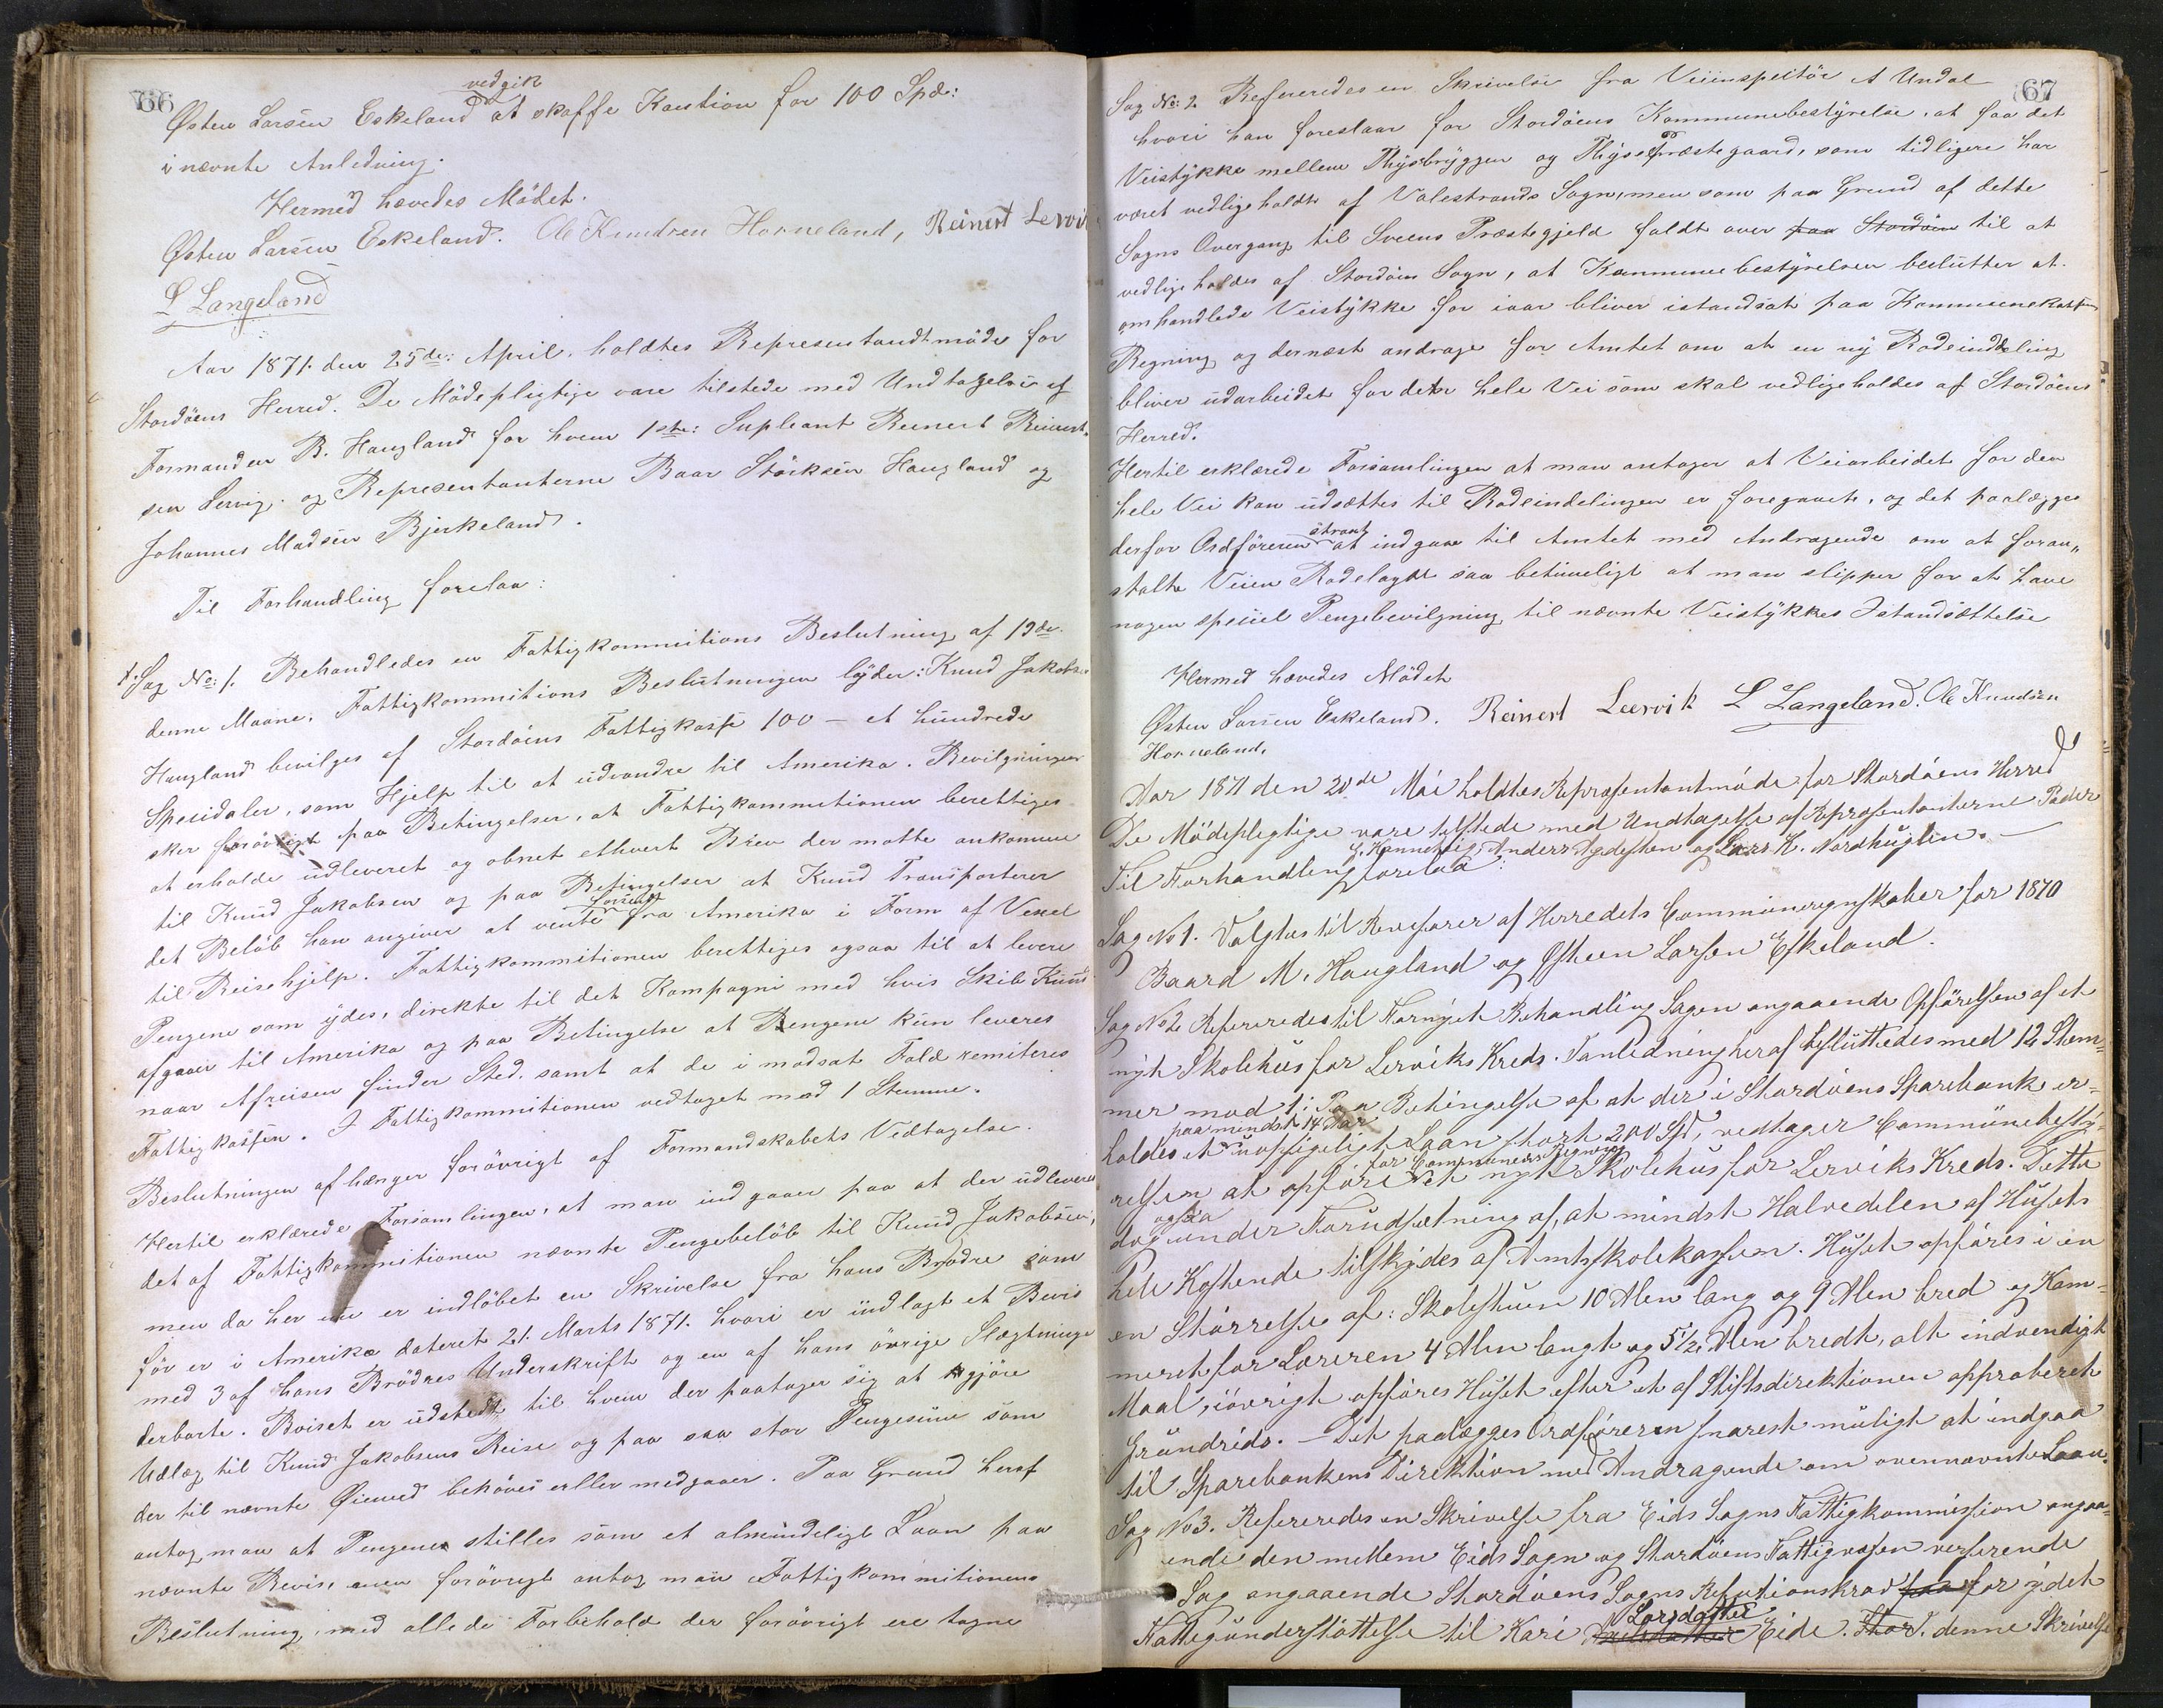 66
vedgik
Østen Larsen Eskeland at skaffe Kaution for 100 Spd:
i nævnte Anledning.
Hermed hævedes Mödet.
Østen Larsen Eskeland. Ole Knudsen Horneland, Reinert Lervik
L Langeland
Aar 1871. den 25de: April. holdtes Representandtmöde for
Stordöens Herred. De Mödepligtige vare tilstede med Undtagelse af
Formanden B. Haugland for hvem 1ste: Supleant Reinert Reinert-
sen Lervig. og Representanterne Baar Störksen Haugland og
Johannes Madsen Bjerkeland.
Til Forhandling forelaa:
Sag No: 1. Behandledes en Fattigkommitions Beslutning af 19de.
denne Maane. Fattigkommitions Beslutningen lyder: Knud Jakobsen
Haugland bevilges af Stordöens Fattigkasse 100 – et hundrede
Spesidaler, som Hjelp til at udvandre til Amerika. Bevilgningen
sker forövrigt paa Betingelser, at Fattigkommitionen berettiges
at erholde udleveret og obnet ethvert Brev der matte ankomme
til Knud Jakobsen og paa Betingelser at Knud Transporterer
det Belöb han angiver at vente fra Amerika i Form af Vexel
til Reisehjelp. Fattigkommitionen berettiges ogsaa til at levere
Pengene som ydes, direkte til det Kompagni med hvis Skib Knud
afgaaer til Amerika og paa Betingelse at Pengene kun leveres
naar Afreisen finder Sted. samt at de i modsat Fald remiteres
Fattigkassen. I Fattigkommitionen vedtaget mod 1 Stemme.
Beslutningen afhænger forövrigt af Formandskabets Vedtagelse.
Hertil erklærede Forsamlingen, at man indgaaer paa at der udleveres
det af Fattigkommitionen nævnte Pengebelöb til Knud Jakobsen,
men da her nu er indlöbet en Skrivelse fra hans Brödre som
för er i Amerika dateret 21. Marts 1871. hvori er indlagt et Bevis
med 3 af hans Brödres Underskrift og en af hans övrige Slægtninge
derborte. Beviset er udstedt til hvem der paatager sig at gjöre
Udlæg til Knud Jakobsens Reise og paa saa stor Pengesum som
der til nævnte Øiemed behöves eller medgaaer. Paa Grund heraf
antog man at Pengene stilles som et almindeligt Laan paa
nævnte Bevis, men forövrigt antog man Fattigkommitionens
Beslutning, med alle de Forbehold der forövrigt ere tagne
67
Sag No: 2. Refereredes en Skrivelse fra Veiinspektör A Undal
hvori han foreslaar for Stordöens Kommunebestyrelse, at faa det
Veistykke mellem Thysebryggen og Thyse Præstegaard, som tidligere har
været vedligeholdt af Valestrands Sogn, men som paa Grund af dette
Sogns Overgang til Sveens Præstegjeld faldt over paa Stordöen til at
vedligeholdes af Stordöens Sogn, at Kommunebestyrelsen beslutter at
omhandlede Veistykke for iaar bliver istandsat paa Kommunekassens
Regning og dernæst andrage for Amtet om at en ny Rodeinddeling
bliver udarbeidet for den hele Vei som skal vedligeholdes af Stordöens
Herred.
Hertil erklærede Forsamlingen at man antager at Veiarbeidet for den
hele Vei kan udsættes til Rodeindelingen er foregaaet, og det paalægges
strax
derfor Ordföreren at indgaae til Amtet med Andragende om at foran-
stalte Veien Rodelagt saa betimeligt at man slipper for at have
nogen speciel Pengebevilgning til nævnte Veistykkes Istandsættelse
Hermed hævedes Mödet
Østen Larsen Eskeland. Reinert Leervik L Langeland. Ole Knudsen
Horneland.
Aar 1871 den 20de Mai holdtes Repræsentantmöde for Stordöens Herred
De Mödepligtige vare tilstede med Undtagelse af Repræsentanterne Peder
Anders Agdesten og Lars K. Nordhuglen. —
Til Forhandling forelaa:
Sag No 1. Valgtes til Revisorer af Herredets Communeregnskaber for 1870
Baard M. Haugland og Østeen Larsen Eskeland.
Sag No 2. Refereredes til Fornyet Behandling Sagen angaaende Opförelsen af et
nyt Skolehus for Lerviks Kreds. I anledning heraf besluttedes med 12 Stem-
mer mod 1: Paa Betingelse af at der i Stordöens Sparebank er-
paa mindst 14 Aar
holdes et uopsigeligt Laan stort 200 Spd, vedtager Communebesty-
for Communens Regning
relsen at opföre et nyt Skolehus for Lerviks Kreds. Dette
ogsaa
dog under Forudsætning af, at mindst Halvedelen af Husets
hele Kostende tilskydes af Amtsskolekassen. Huset opföres i en
en Störrelse af: Skolestuen 10 Alen lang og 9 Alen bred og Kam-
meret for Læreren 4 Alen langt og 5½ Alen bredt, alt indvendigt
Maal, iövrigt opföres Huset efter et af Stiftsdirektionen approberet
Grundrids. — Det paalægges Ordföreren snarest muligt at indgaa
til Sparebankens Direktion med Andragende om ovennævnte Laan.
Sag No 3. Refereredes en Skrivelse fra Eids Sogns Fattigkommission angaa-
ende den mellem Eids Sogn og Stordöens Fattigvæsen verserende
Sag angaaende Stordöens Sogns Refutionskrav for ydet
Larsdatter
Fattigunderstöttelse til Kari Eide. denne Skrivelse